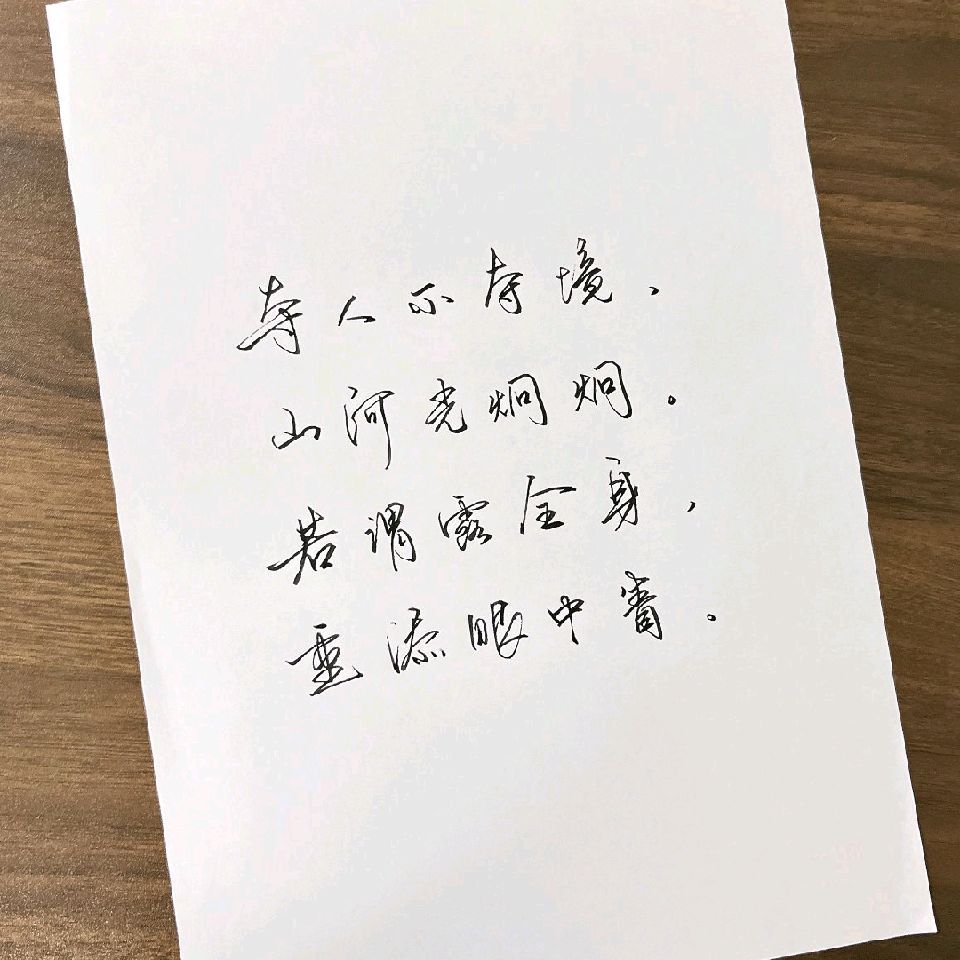 夺人不夺境，
山河光炯炯。
若谓露全身，
重添眼中眚。